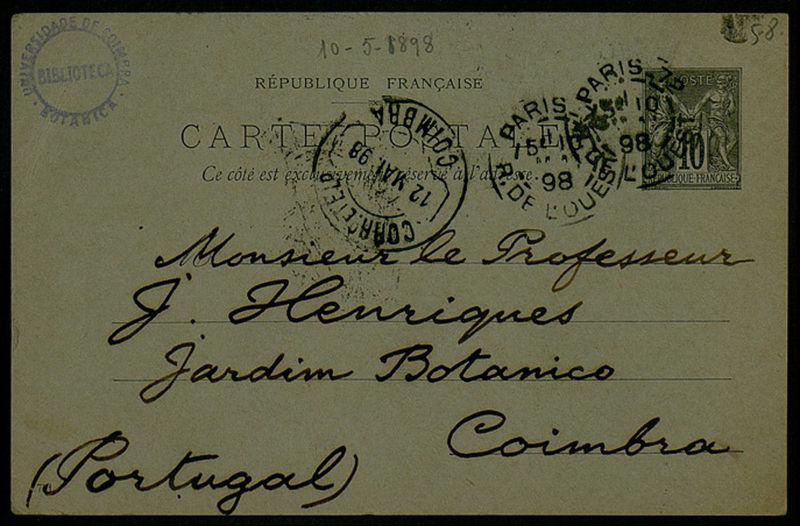 UNIVERSIDADE DE COIMBRA
BIBLIOTECA
BOTANICA
10-5-1898
58.
RÉPUBLIQUE FRANÇAISE
CARTE POSTALE
Ce côté est exclusivement réservé à l'adresse.
CORREIO
COIMBRA
12 MAI 98
PARIS
98
R. DE L'OUEST
PARIS
10
98
POSTE
10
REPUBLIQUE FRANÇAISE
Monsieur le Professeur
J. Henriques
Jardim Botanico
Coimbra
(Portugal)